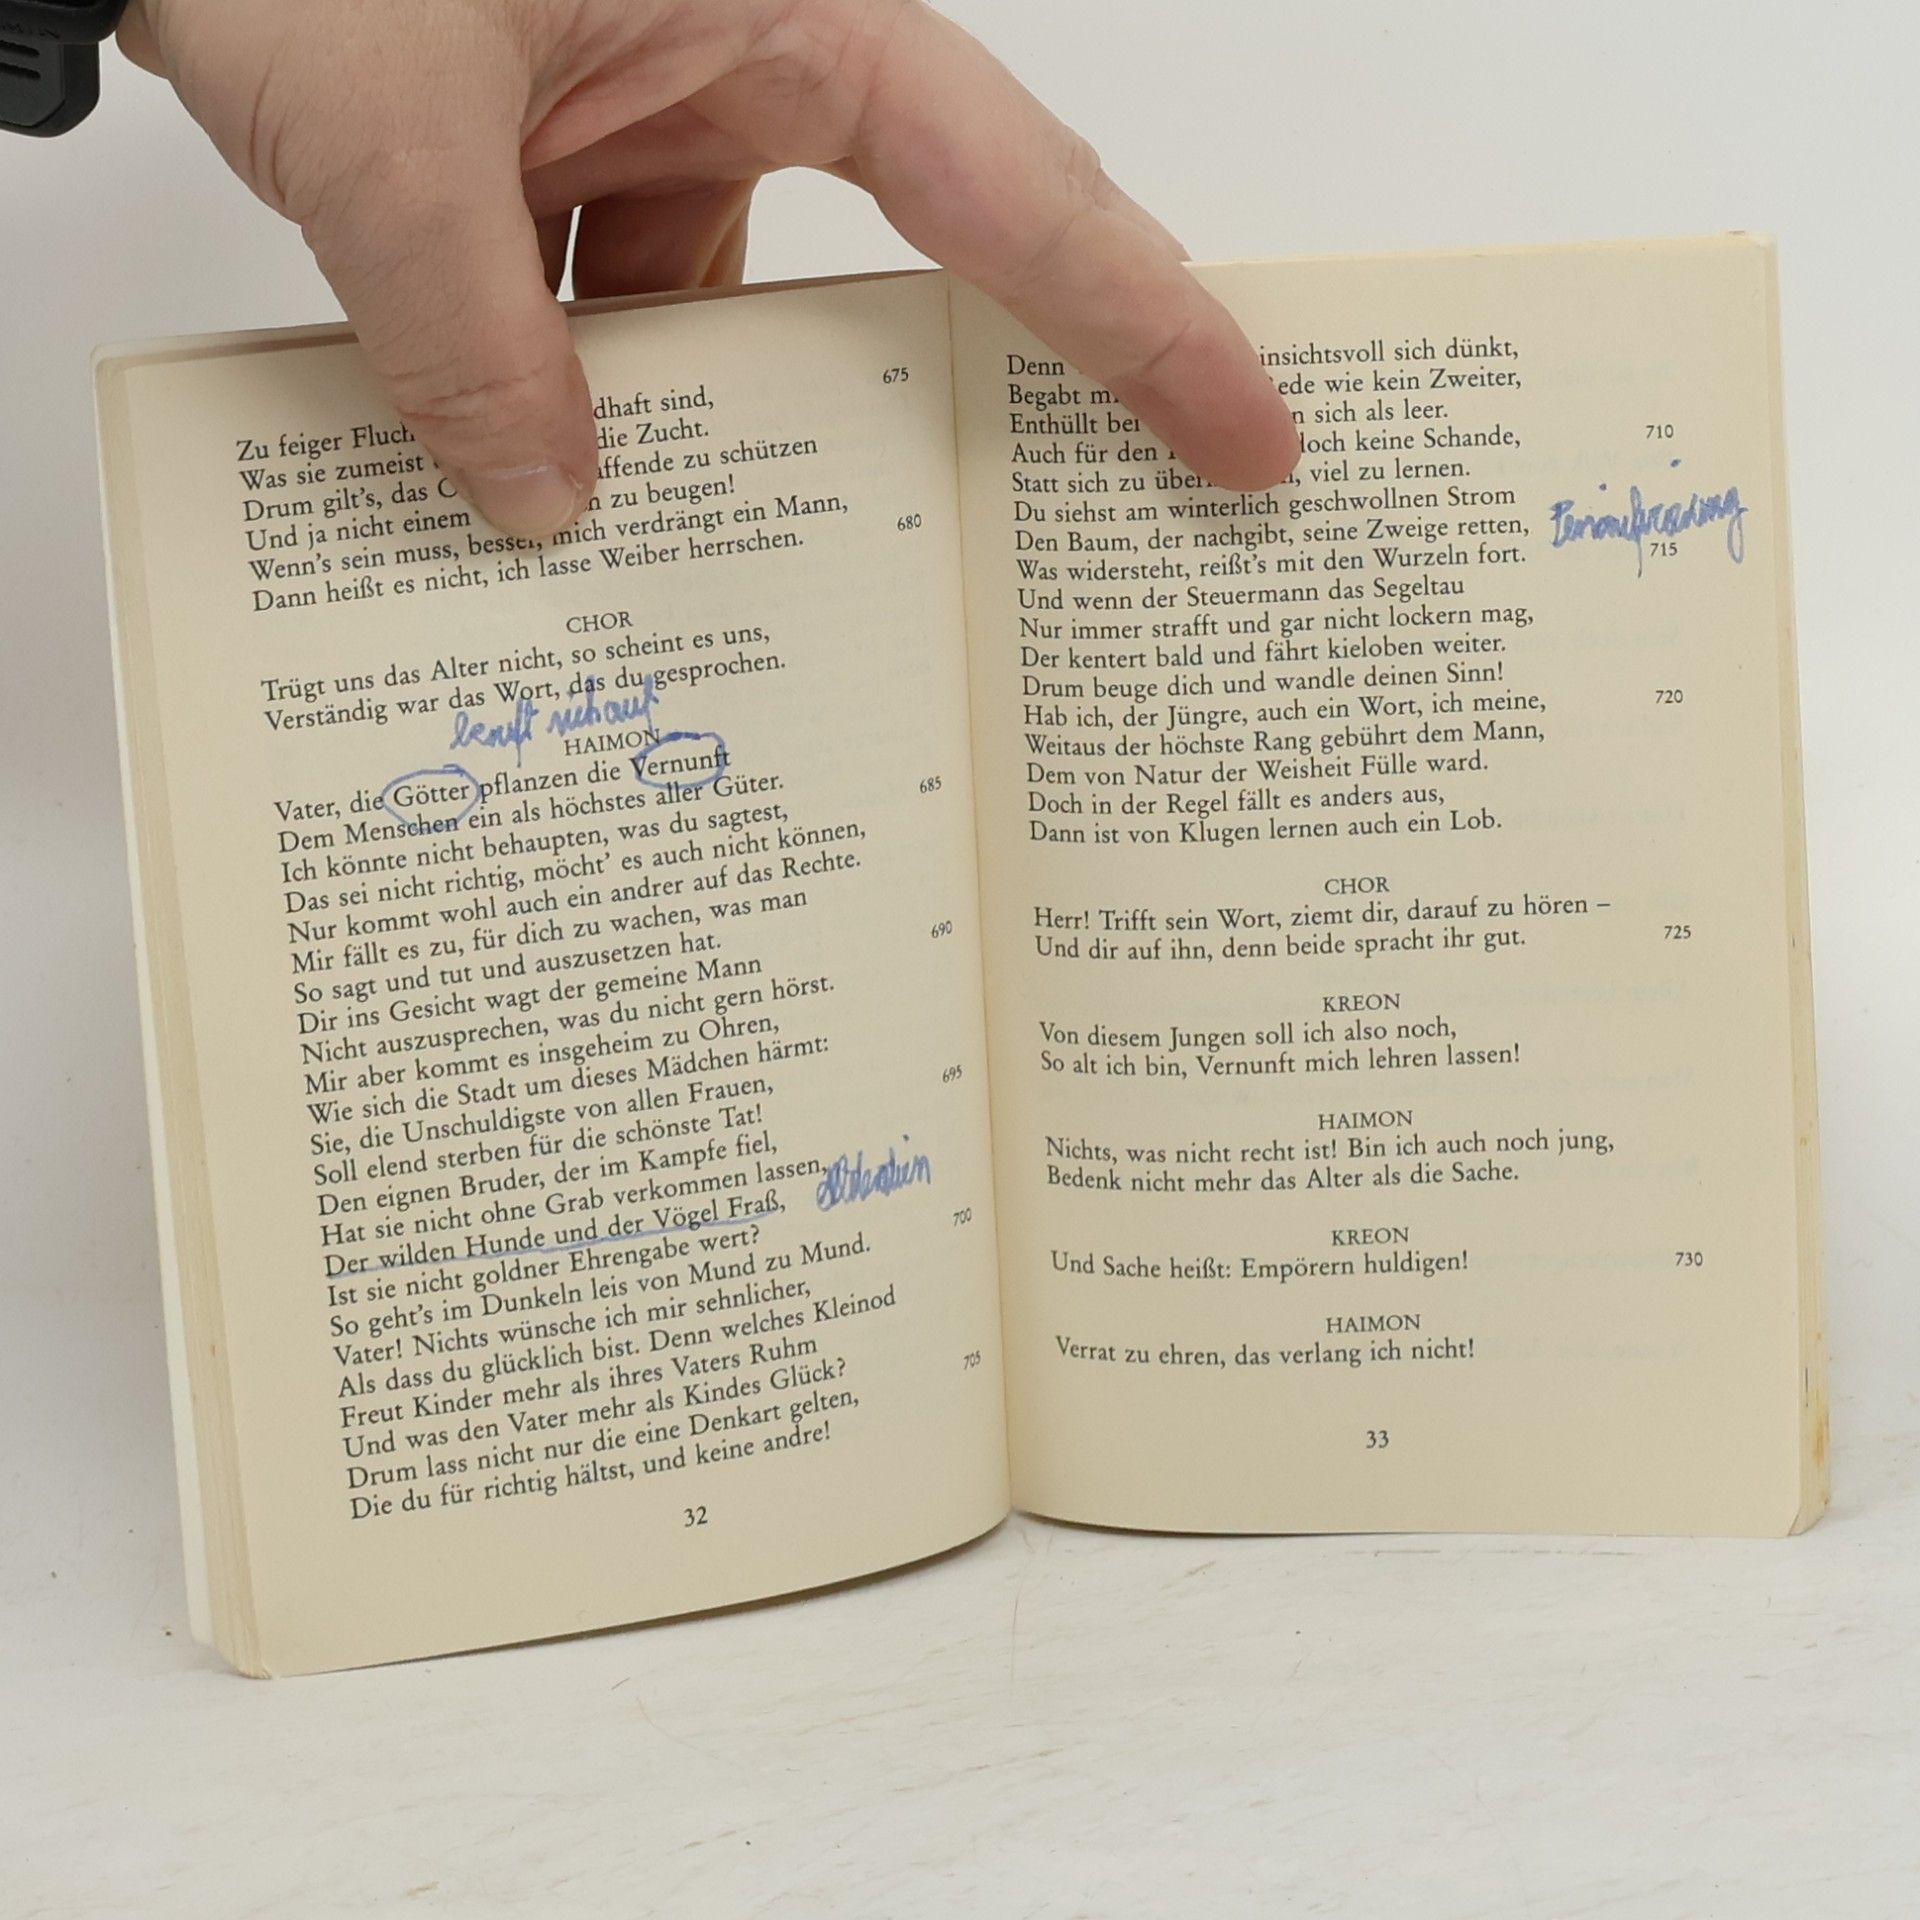 675
Zu feiger dhaft sind,
Was sie zumeist die Zucht.
Drum gilt's, das zu schützen
Und ja nicht einem zu beugen!
Wenn's sein muss, besser, mich verdrängt ein Mann,
680
Dann heißt es nicht, ich lasse Weiber herrschen.
CHOR
Trügt uns das Alter nicht, so scheint es uns,
Verständig war das Wort, das du gesprochen.
beruft sich auf
HAIMON
Vater, die Götter pflanzen die Vernunft
Dem Menschen ein als höchstes aller Güter.
685
Ich könnte nicht behaupten, was du sagtest,
Das sei nicht richtig, möcht' es auch nicht können,
Nur kommt wohl auch ein andrer auf das Rechte.
Mir fällt es zu, für dich zu wachen, was man
So sagt und tut und auszusetzen hat.
690
Dir ins Gesicht wagt der gemeine Mann
Nicht auszusprechen, was du nicht gern hörst.
Mir aber kommt es insgeheim zu Ohren,
Wie sich die Stadt um dieses Mädchen härmt:
Sie, die Unschuldigste von allen Frauen,
695
Soll elend sterben für die schönste Tat!
Den eignen Bruder, der im Kampfe fiel,
Hat sie nicht ohne Grab verkommen lassen,
Der wilden Hunde und der Vögel Fraß,
Ist sie nicht goldner Ehrengabe wert?
700
So geht's im Dunkeln leis von Mund zu Mund.
Vater! Nichts wünsche ich mir sehnlicher,
Als dass du glücklich bist. Denn welches Kleinod
Freut Kinder mehr als ihres Vaters Ruhm
Und was den Vater mehr als Kindes Glück?
705
Drum lass nicht nur die eine Denkart gelten,
Die du für richtig hältst, und keine andre!
32
Denn insichtsvoll sich dünkt,
Begabt ede wie kein Zweiter,
Enthüllt bei sich als leer.
Auch für den doch keine Schande,
710
Statt sich zu viel zu lernen.
Du siehst am winterlich geschwollnen Strom
Den Baum, der nachgibt, seine Zweige retten,
Was widersteht, reißt's mit den Wurzeln fort.
715
Und wenn der Steuermann das Segeltau
Nur immer strafft und gar nicht lockern mag,
Der kentert bald und fährt kieloben weiter.
Drum beuge dich und wandle deinen Sinn!
Hab ich, der Jüngre, auch ein Wort, ich meine,
720
Weitaus der höchste Rang gebührt dem Mann,
Dem von Natur der Weisheit Fülle ward.
Doch in der Regel fällt es anders aus,
Dann ist von Klugen lernen auch ein Lob.
CHOR
Herr! Trifft sein Wort, ziemt dir, darauf zu hören –
Und dir auf ihn, denn beide spracht ihr gut.
725
KREON
Von diesem Jungen soll ich also noch,
So alt ich bin, Vernunft mich lehren lassen!
HAIMON
Nichts, was nicht recht ist! Bin ich auch noch jung,
Bedenk nicht mehr das Alter als die Sache.
KREON
Und Sache heißt: Empörern huldigen!
730
HAIMON
Verrat zu ehren, das verlang ich nicht!
33